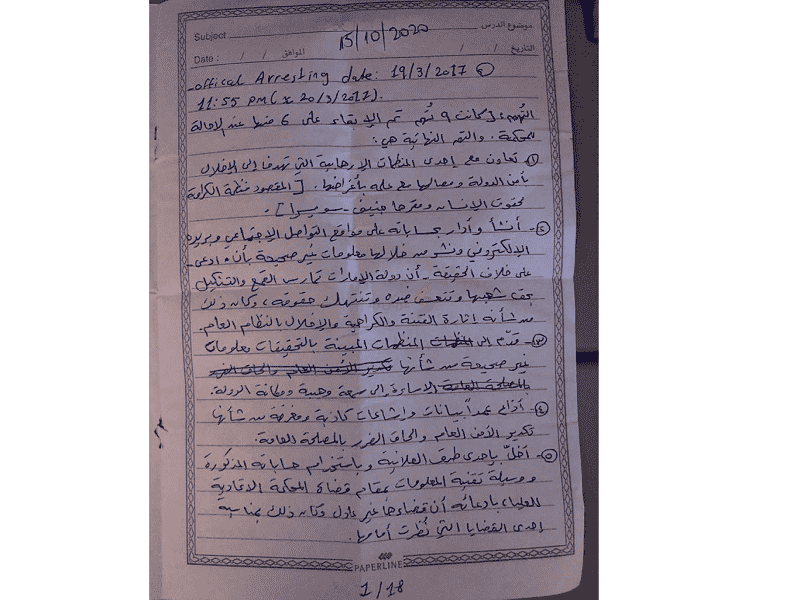 Subject موضوع الدرس
15/10/2020
Date : / / الموافق / / التاريخ
-offical Arresting date: 19/3/2017
11:55 PM (x 20/3/2017).
التُهم: [كانت ٩ تُهم تم الإبقاء على 6 منها عند الإحالة
للمحكمة. والتهم النهائية هي:
① تعاون مع إحدى المنظمات الإرهابية التي تهدف إلى الإخلال
بأمن الدولة ومصالحها مع علمه بأغراضها. [المقصود منظمة الكرامة
لحقوق الإنسان ومقرها جنيف - سويسرا].
②- أنشأ وأدار حساباته على مواقع التواصل الاجتماعي وبريده
الإلكتروني ونشر من خلالها معلومات غير صحيحة بأن ادعى -
على خلاف الحقيقة - أن دولة الإمارات تمارس القمع والتنكيل
بحق شعبها وتتعسف ضده وتنتهك حقوقه، وكان ذلك
من شأنه إثارة الفتنة والكراهية والإخلال بالنظام العام.
③- قدّم إلى المنظمات المبينة بالتحقيقات معلومات
غير صحيحة من شأنها تكدير الأمن العام والحاق الضرر
بالمصلحة العامة الإساءة إلى سمعة وهيبة ومكانة الدولة.
④- أذاع عمداً بيانات وإشاعات كاذبة ومغرضة من شأنها
تكدير الأمن العام والحاق الضرر بالمصلحة العامة.
⑤- أخلّ بإحدى طرق العلانية وباستخدام حساباته المذكورة
ووسيلة تقنية المعلومات بمقام قضاة المحكمة الاتحادية
العليا، بادعائه أن قضاءها غير عادل وكان ذلك بمناسبة
إحدى القضايا التي نُظرت أمامها.
PAPERLINE
1/18